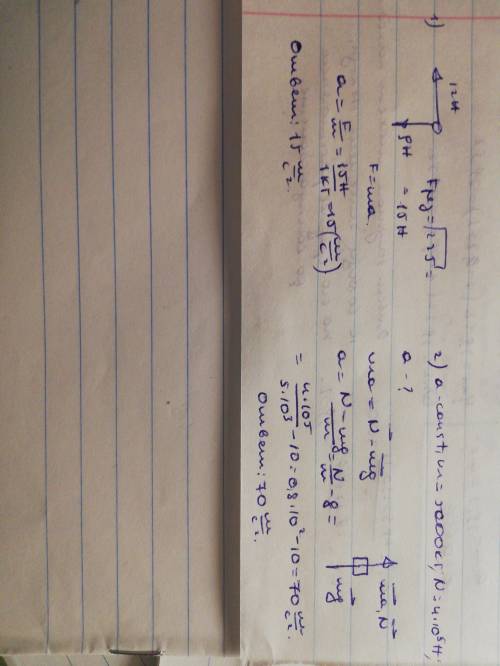 1)
12Н
9Н
Fμ₃ = √225 =
= 15Н
F=ma.
a = F/m = 15Н/1кг = 15 (м/с²)
Ответ: 15 м/с².
2) a-const, m = 5000кг, N = 4·10⁵Н,
a - ?
ma = N - mg
ma, N
a = (N - mg)/m = N/m - g =
mg
= 4·10⁵/5·10³ - 10 = 0,8·10² - 10 = 70 м/с².
Ответ: 70 м/с².